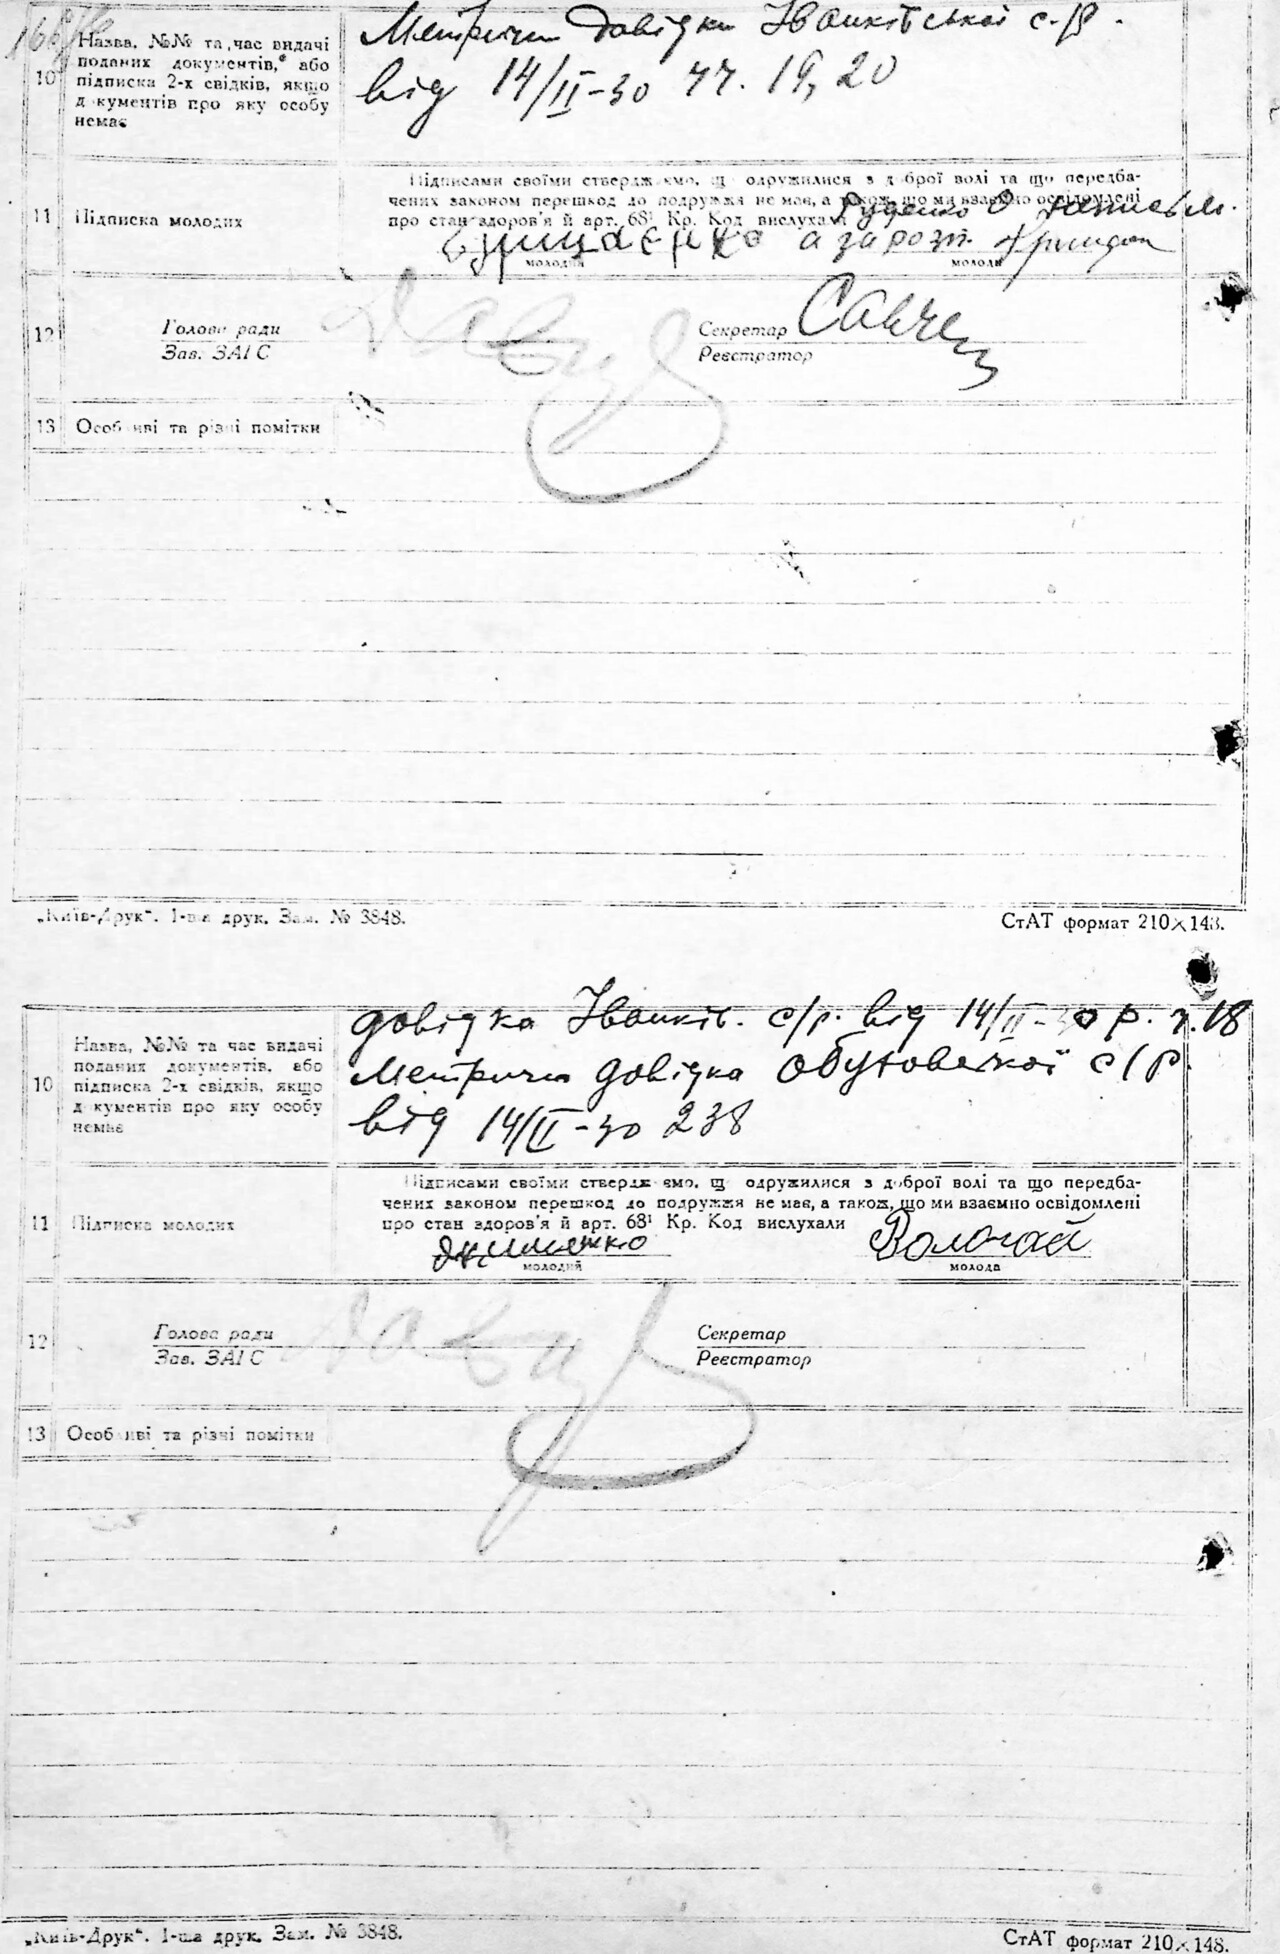 Метричн довідки Іванківської с-р.
10 Назва, №№ та час видачі поданих документів, або підписка 2-х свідків, якщо документів про яку особу немає
від 14/II-30 чч. 19, 20
Підписами своїми стверджуємо, що одружилися з доброї волі та що передба-
чених законом перешкод до подружжя не має, а також, що ми взаємно освідомлені
про стан здоров'я й арт. 68¹ Кр. Код вислухали
11 Підписка молодих
Руденко О
а за розп.
молодий молода
12 Голова ради Секретар Савчен
Зав. ЗАГС Реєстратор
13 Особливі та різні помітки
„Київ-Друк“. 1-ша друк. Зам. № 3848. СтАТ формат 210×148.
довідка Іванків. с/р. від 14/II-30 р. ч. 18
10 Назва, №№ та час видачі поданих документів, або підписка 2-х свідків, якщо документів про яку особу немає
Метричн довідка Обуховської с/р.
від 14/II-30 238
Підписами своїми стверджуємо, що одружилися з доброї волі та що передба-
чених законом перешкод до подружжя не має, а також, що ми взаємно освідомлені
про стан здоров'я й арт. 68¹ Кр. Код вислухали
11 Підписка молодих
молодий молода
12 Голова ради Секретар
Зав. ЗАГС Реєстратор
13 Особливі та різні помітки
„Київ-Друк“. 1-ша друк. Зам. № 3848. СтАТ формат 210×148.